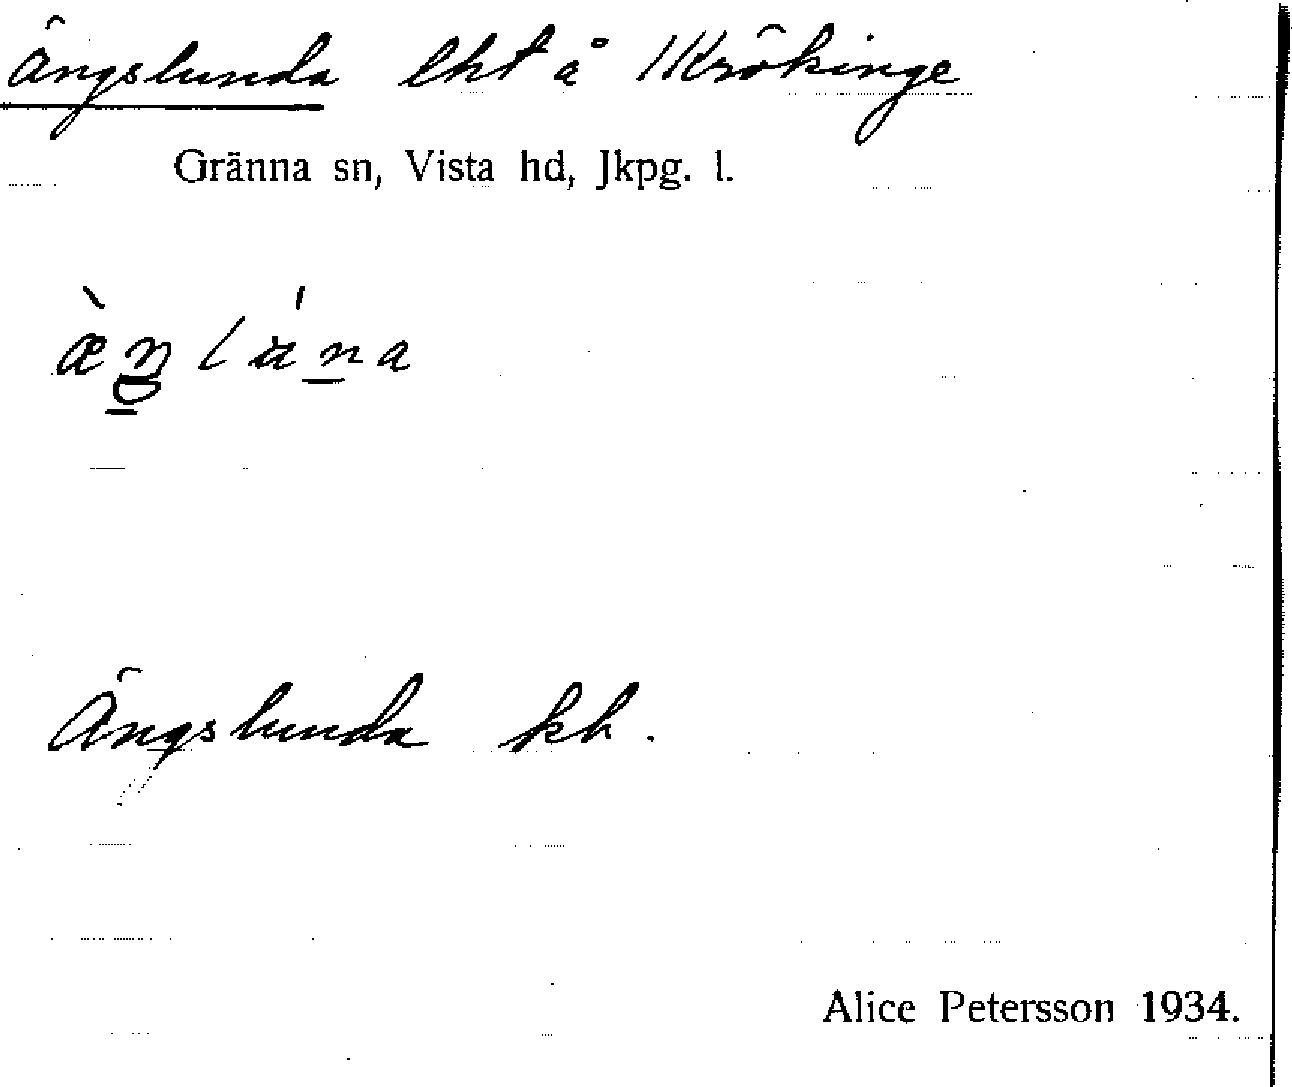 Ängslunda lht å 1 Krökinge
Gränna sn, Vista hd, Jkpg. l.
Ängslunda kh.
Alice Petersson 1934.